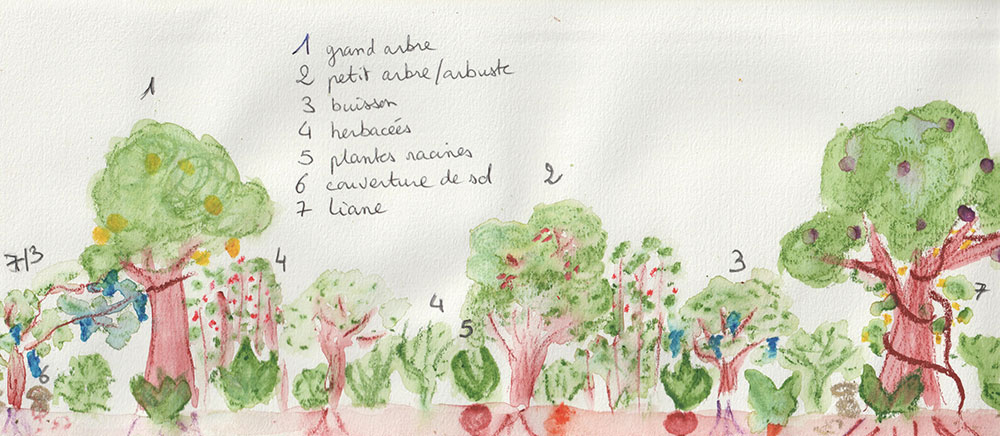 1 grand arbre
2 petit arbre/arbuste
3 buisson
4 herbacées
5 plantes racines
6 couverture de sol
7 liane
1
2
7/3
4
3
4
5
7
6